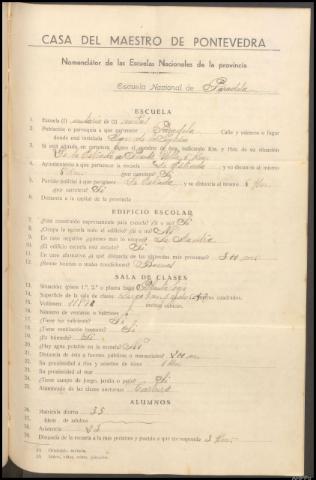 CASA DEL MAESTRO DE PONTEVEDRA
Nomenclátor de las Escuelas Nacionales de la provincia
Escuela Nacional de Paradela
ESCUELA
1. Escuela (1) de (2)
2. Población o parroquia a que pertenece Paradela Calle y número o lugar
donde está instalada
3. Si está situada en carretera, dígase el nombre de ésta, indicando Km. y Hm. de su situación
La Estrada a
4. Ayuntamiento a que pertenece La Estrada y su distancia al mismo
6 Km (por carretera) Si
5. Partido judicial a que pertenece La Estrada y su distancia al mismo 6 Km
(por carretera) Si
6. Distancia a la capital de la provincia
EDIFICIO ESCOLAR
7. ¿Fué construído expresamente para escuela? (sí o no) Si
8. ¿Ocupa la escuela todo el edificio? (sí o no) No
9. En caso negativo ¿quiénes más lo ocupan?
10. ¿El edificio escuela está aislado? Si
11. En caso afirmativo ¿a qué distancia de los edificios más próximos? 300 m
12. ¿Reune buenas o malas condiciones? Buenas
SALA DE CLASES
13. Situación: (planta 1.ª, 2.ª o planta baja)
14. Superficie de la sala de clase metros cuadrados.
15. Volumen metros cúbicos.
16. Número de ventanas o balcones
17. ¿Tiene luz suficiente? Si
18. ¿Tiene ventilación bastante? Si
19. ¿Es húmeda? Si
20. ¿Hay agua potable en la escuela? No
21. Distancia de ésta a fuentes públicas o manantiales? 200 m
22. Su proximidad a ríos y nombre de éstos
23. Su proximidad al mar
24. ¿Tiene campo de juego, jardín o patio? Si
25. Alumbrado de las clases nocturnas Carburo
ALUMNOS
26. Matrícula diurna 35
27. Idem de adultos
28. Asistencia 23
29. Distancia de la escuela a la más próxima y pueblo a que corresponde 3 Km
(1) Graduada, unitaria.
(2) Niños, niñas, mixta, párvulos.